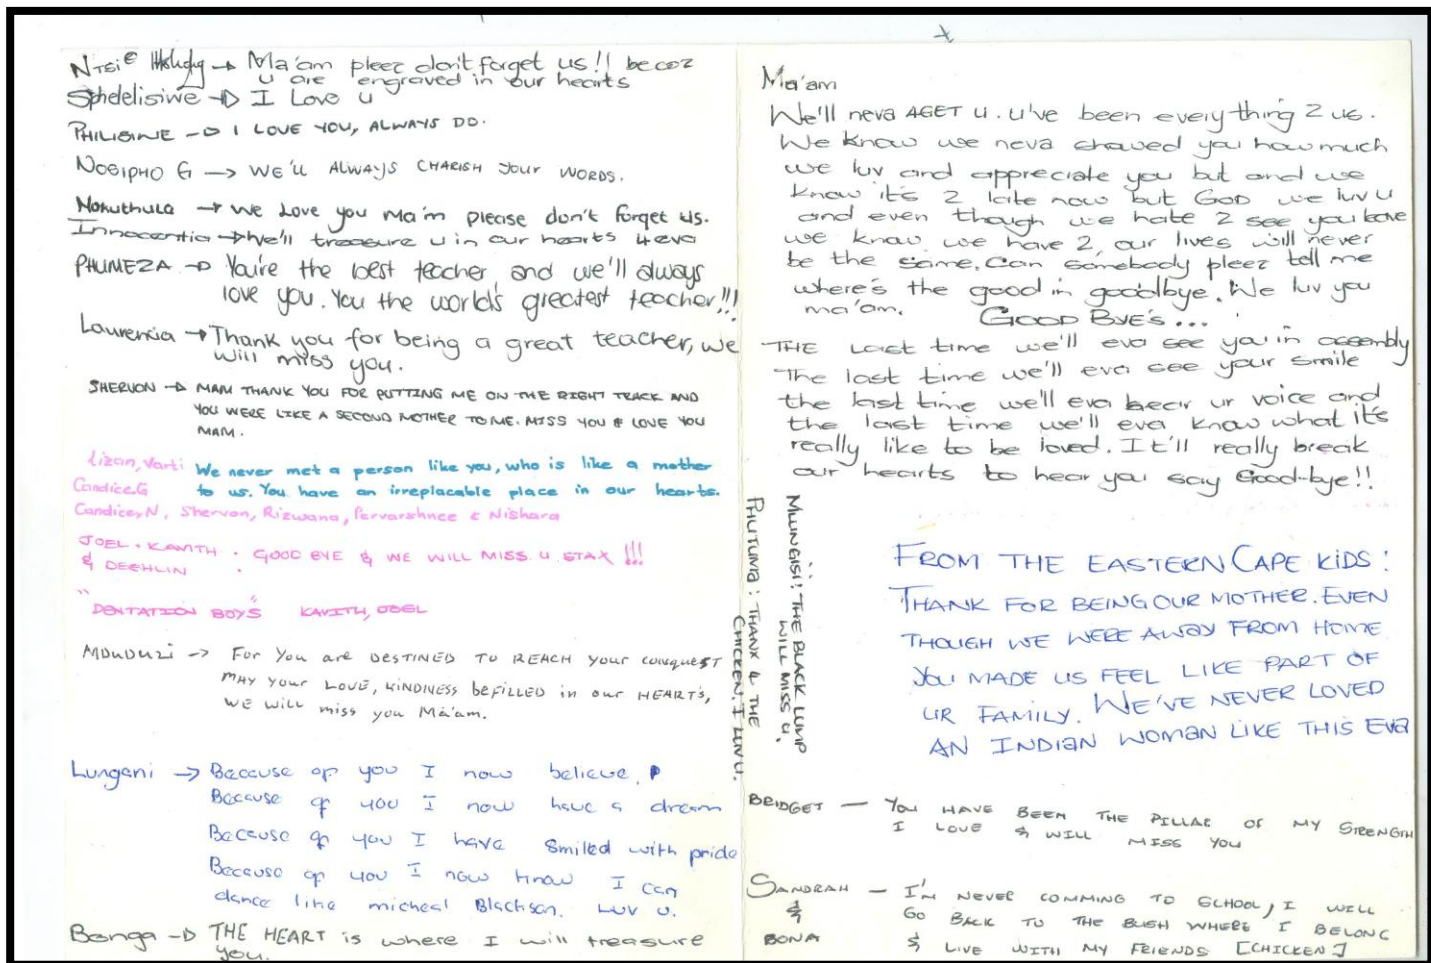 Ntsie → Ma'am pleez don't forget us!! becoz
u are engraved in our hearts
Sphdelisiwe → I Love u
PHILISIWE → I LOVE YOU, ALWAYS DO.
NOSIPHO G → WE'LL ALWAYS CHARISH YOUR WORDS.
Nokuthula → We Love you Ma'm please don't forget us.
Innocentia → We'll treasure u in our hearts 4eva
PHUMEZA → You're the best teacher and we'll always
love you. You the world's greatest teacher!!!
Laurencia → Thank you for being a great teacher, we
will miss you.
SHERVON → MAM THANK YOU FOR PUTTING ME ON THE RIGHT TRACK AND
YOU WERE LIKE A SECOND MOTHER TO ME. MISS YOU & LOVE YOU
MAM.
Lizan, Varti We never met a person like you, who is like a mother
Candice.G to us. You have an irreplacable place in our hearts.
Candice, N, Shervon, Rizwana, Pervarshnee & Nishara
JOEL. KAVITH. GOOD BYE & WE WILL MISS U STAX !!!
& DEEHLIN
"DENTATION BOYS" KAVITH, JOEL
MDUDUZI → For You are DESTINED TO REACH your conquest
MAY your LOVE, KINDNESS be FILLED in our HEART'S,
WE will miss you Ma'am.
Lungani → Because of you I now believe.
Because of you I now have a dream
Because of you I have smiled with pride
Because of you I now know I can
dance like micheal Blackson. Luv u.
Bonga → THE HEART is where I will treasure
you.
MLUNGISI: THE BLACK LUMP
WILL MISS U.
PHUTUMA: THANX 4 THE
CHICKEN. I LUV U.
Ma'am
We'll neva 4GET U. U've been everything 2 us.
We know we neva showed you how much
we luv and appreciate you but and we
know it's 2 late now but GOD we luv u
and even though we hate 2 see you leave
we know we have 2, our lives will never
be the same. Can somebody pleez tell me
where's the good in goodbye. We luv you
ma'am.
GOOD BYE'S...
THE last time we'll eva see you in assembly
The last time we'll eva see your smile
the last time we'll eva hear ur voice and
the last time we'll eva know what it's
really like to be loved. It'll really break
our hearts to hear you say Good-bye!!
FROM THE EASTERN CAPE KIDS:
THANK FOR BEING OUR MOTHER. EVEN
THOUGH WE WERE AWAY FROM HOME
YOU MADE US FEEL LIKE PART OF
UR FAMILY. WE'VE NEVER LOVED
AN INDIAN WOMAN LIKE THIS EVA
BRIDGET — YOU HAVE BEEN THE PILLAR OF MY STRENGTH
I LOVE & WILL MISS YOU
SANDRAH — I'M NEVER COMMING TO SCHOOL, I WILL
& GO BACK TO THE BUSH WHERE I BELONG
BONA & LIVE WITH MY FRIENDS [CHICKEN]